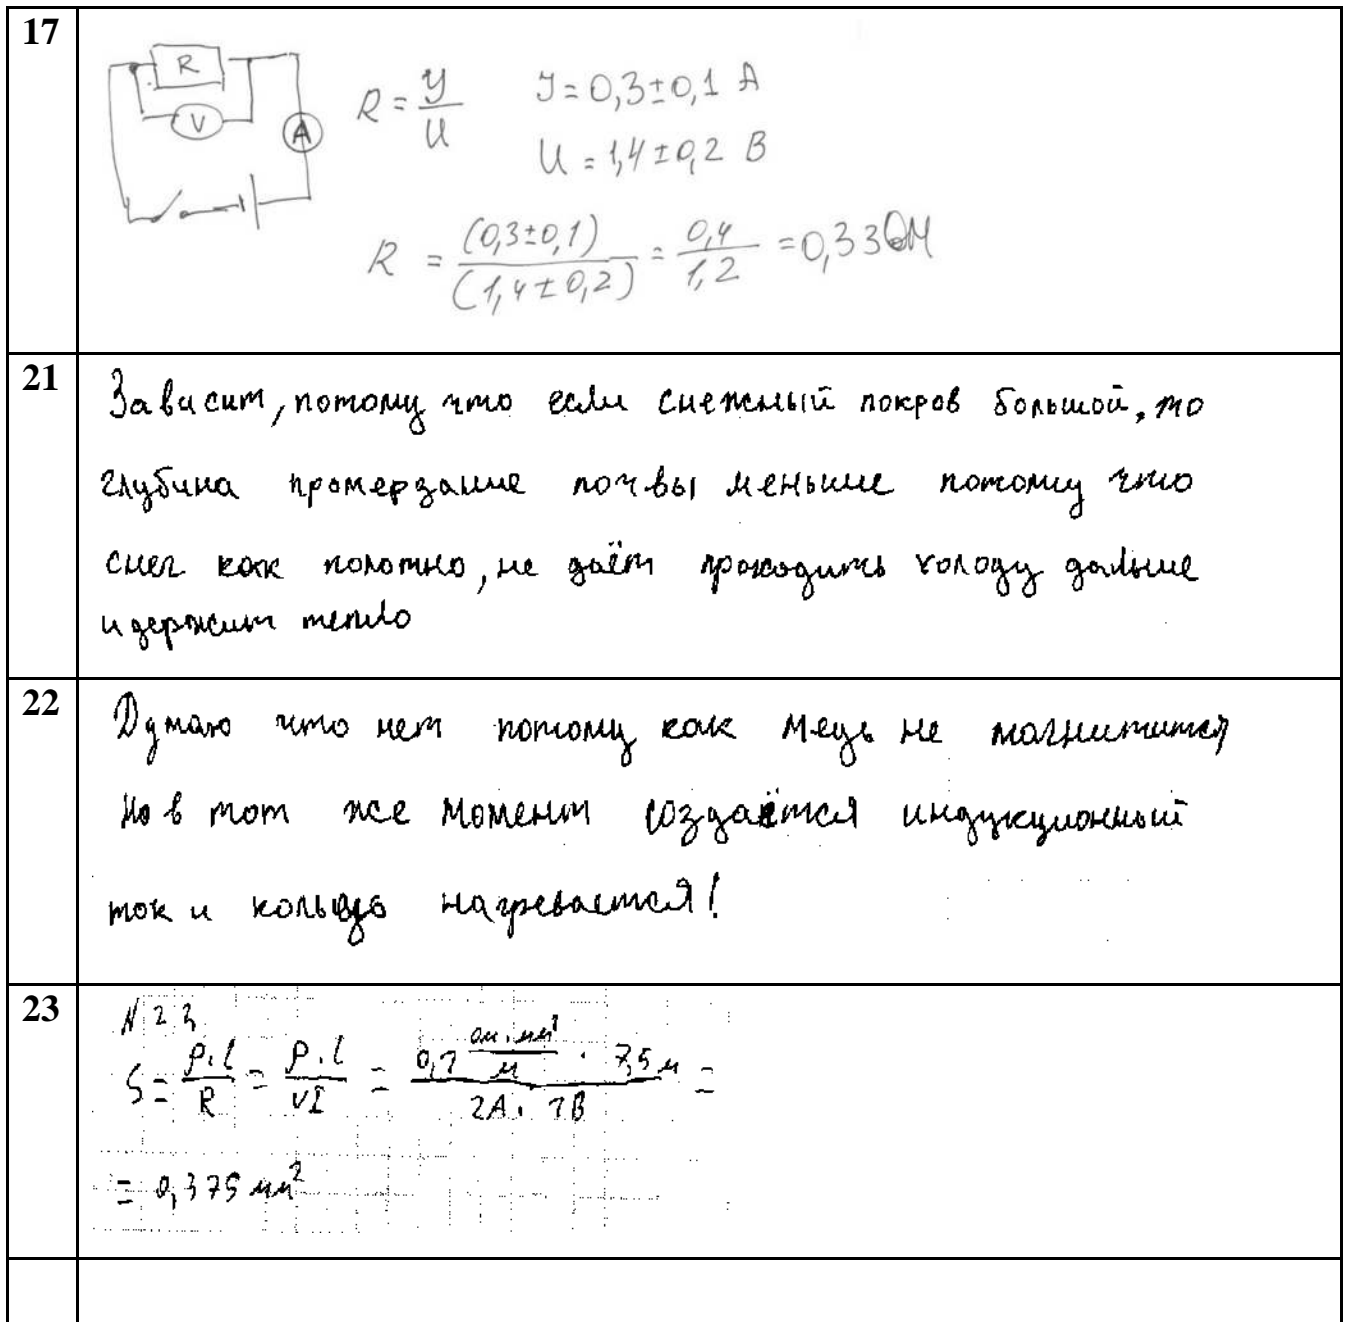 17
R
V
A
R = У/U
J = 0,3±0,1 А
U = 1,4±0,2 В
R = (0,3±0,1)/(1,4±0,2) = 0,4/1,2 = 0,33 ОМ
21
Зависит, потому что если снежный покров большой, то
глубина промерзание почвы меньше потому что
снег как полотно, не даёт проходить холоду дальше
и держит тепло
22
Думаю что нет потому как медь не магнитится
Но в тот же момент создаётся индукционный
ток и кольцо нагревается!
23
N 23
S = ρ·l/R = ρ·l/VI = 0,1 ом·мм²/м · 7,5 м / 2А · 1В =
= 0,375 мм²